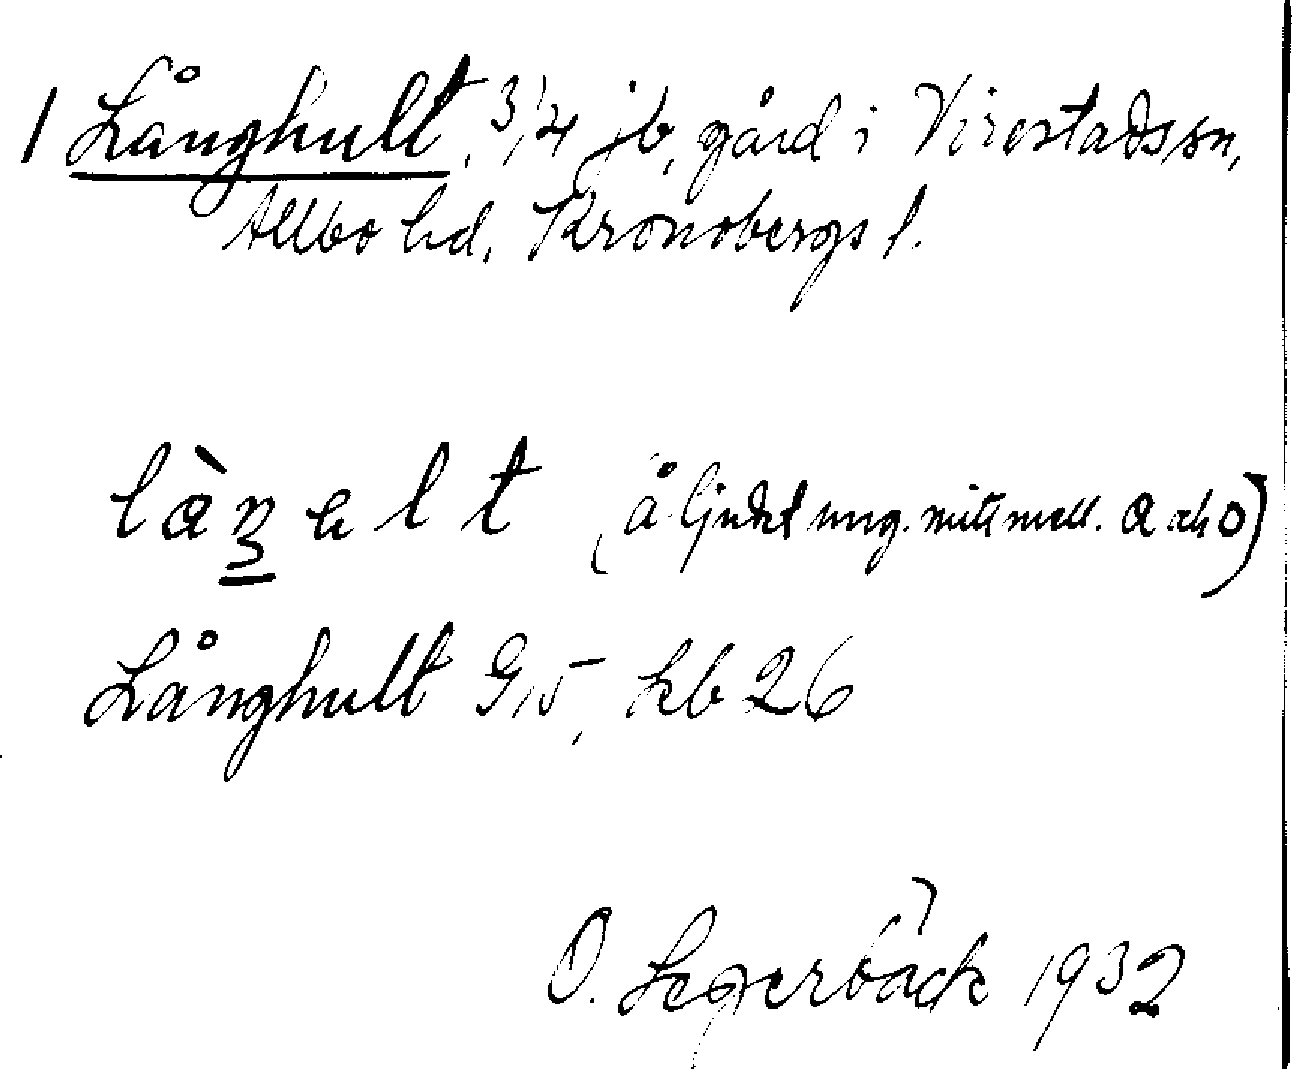 1 Långhult, 3/4 jb, gård i Virestads sn,
Allbo hd, Kronobergs l.
làŋelt (å ljudet ung. mitt mell. a och o)
Långhult G15, kb 26
O. Segerbäck 1932